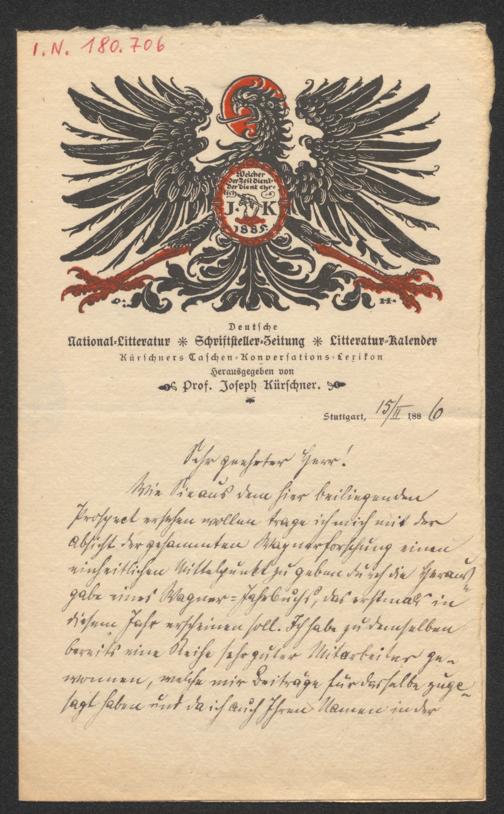 I.N. 180.706
Welcher
der Zeit dient
der dient ehr-
lich
J. K
1885.
O. H.
Deutsche
National-Litteratur * Schriftsteller-Zeitung * Litteratur-Kalender
Kürschners Taschen-Konversations-Lexikon
Herausgegeben von
Prof. Joseph Kürschner.
Stuttgart, 15/II 1886
Sehr geehrter Herr!
Wie Sie aus dem hier beiliegenden
Prospect ersehen wollen trage ich mich mit der
Absicht der gesammten Wagnerforschung einen
einheitlichen Mittelpunkt zu geben durch die Heraus-
gabe eines Wagner-Jahrbuchs, das erstmals in
diesem Jahr erscheinen soll. Ich habe zu demselben
bereits eine Reihe sehr guter Mitarbeiter ge-
wonnen, welche mir Beiträge für dasselbe zuge-
sagt haben und da ich auch Ihren Namen in der